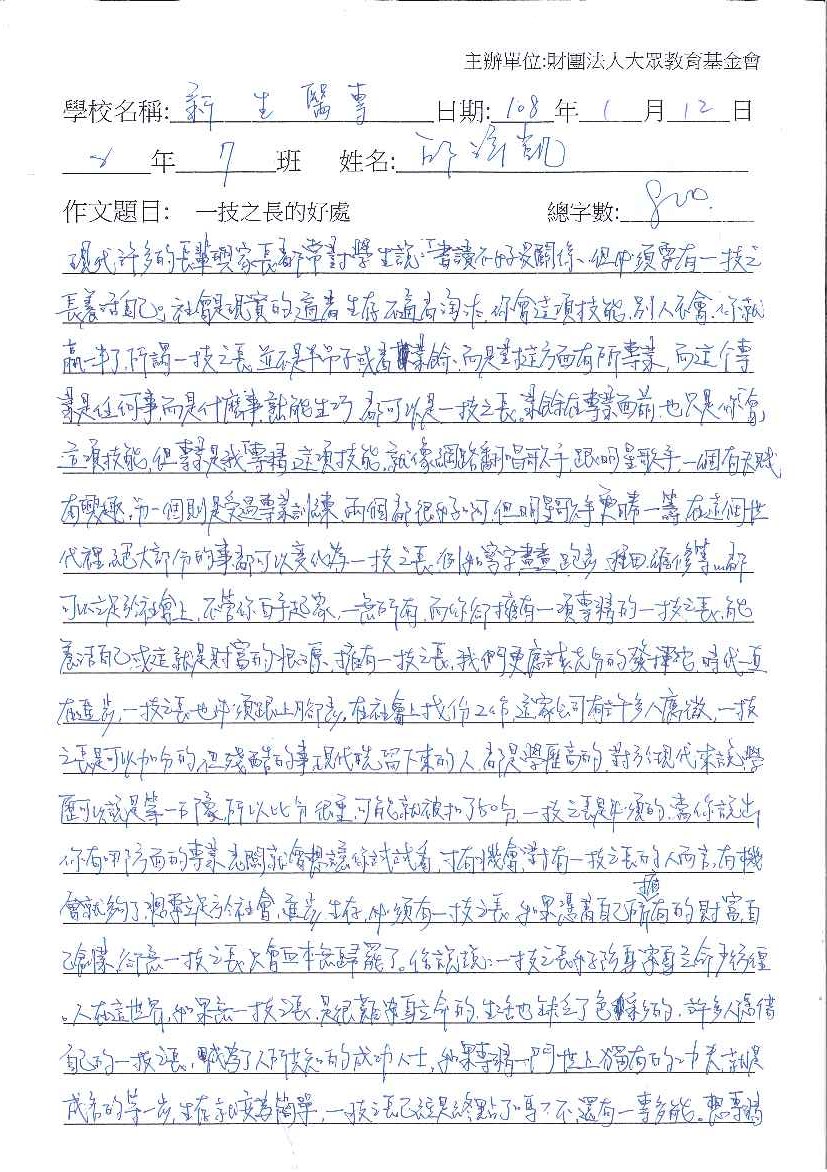 主辦單位:財團法人大眾教育基金會
學校名稱: 新生醫專 日期: 108 年 1 月 12 日
2 年 7 班 姓名: 邱 凱
作文題目: 一技之長的好處 總字數: 800.
現代許多的長輩與家長都常對學生說「書讀不好沒關係、但必須要有一技之
長養活自己。社會是現實的適者生存不適者淘汰,你會這項技能,別人不會,你就
贏一半了,所謂一技之長,並不是半吊子或者業餘、而是對這方面有所專業,而這个專
業是任何事,而是什麼事,熟能生巧 都可以是一技之長。業餘在專業面前也只是你「會」
這項技能,但專業是我「專精」這項技能,就像網路翻唱歌手,跟明星歌手,一個有天賦
有興趣,另一個則是受過專業訓練,兩個都很好呵,但明星歌手更勝一籌,在這個世
代裡,絕大部分的事都可以變化為一技之長,例如寫字畫畫 跑步 種田 維修等...都
可以立足於社會上,不管你白手起家,一無所有,而你卻擁有一項專精的一技之長,能
養活自己或這就是財富的根源,擁有一技之長,我們更應該充分的發揮它,時代一直
在進步,一技之長也必須跟上腳步。在社會上找份工作,這家公司有許多人應徵,一技
之長是可以加分的,但殘酷的事,現代先留下來的人,都是學歷高的,對於現代來說,學
歷可以說是第一印象,所以比分很重,可能就被扣了50分,一技之長是必須的,當你說出
你有哪方面的專業,老闆就會想讓你試試看,才有機會,對有一技之長的人而言,有機
會就夠了,想要立足於社會,進步,生存,必須有一技之長,如果憑着自己所擁有的財富,自
己創業,卻無一技之長,只會血本無歸罷了。俗話說:一技之長好 安身立命
。人在這世界,如果無一技之長,是很難安身立命的,生活也缺乏了色彩的,許多人憑借
自己的一技之長,成為了人所皆知的成功人士,如果專精一門世上獨有的功夫,就是
成名的第一步,生存就較為簡單,一技之長已經是終點了嗎?不,還有一專多能。想專精